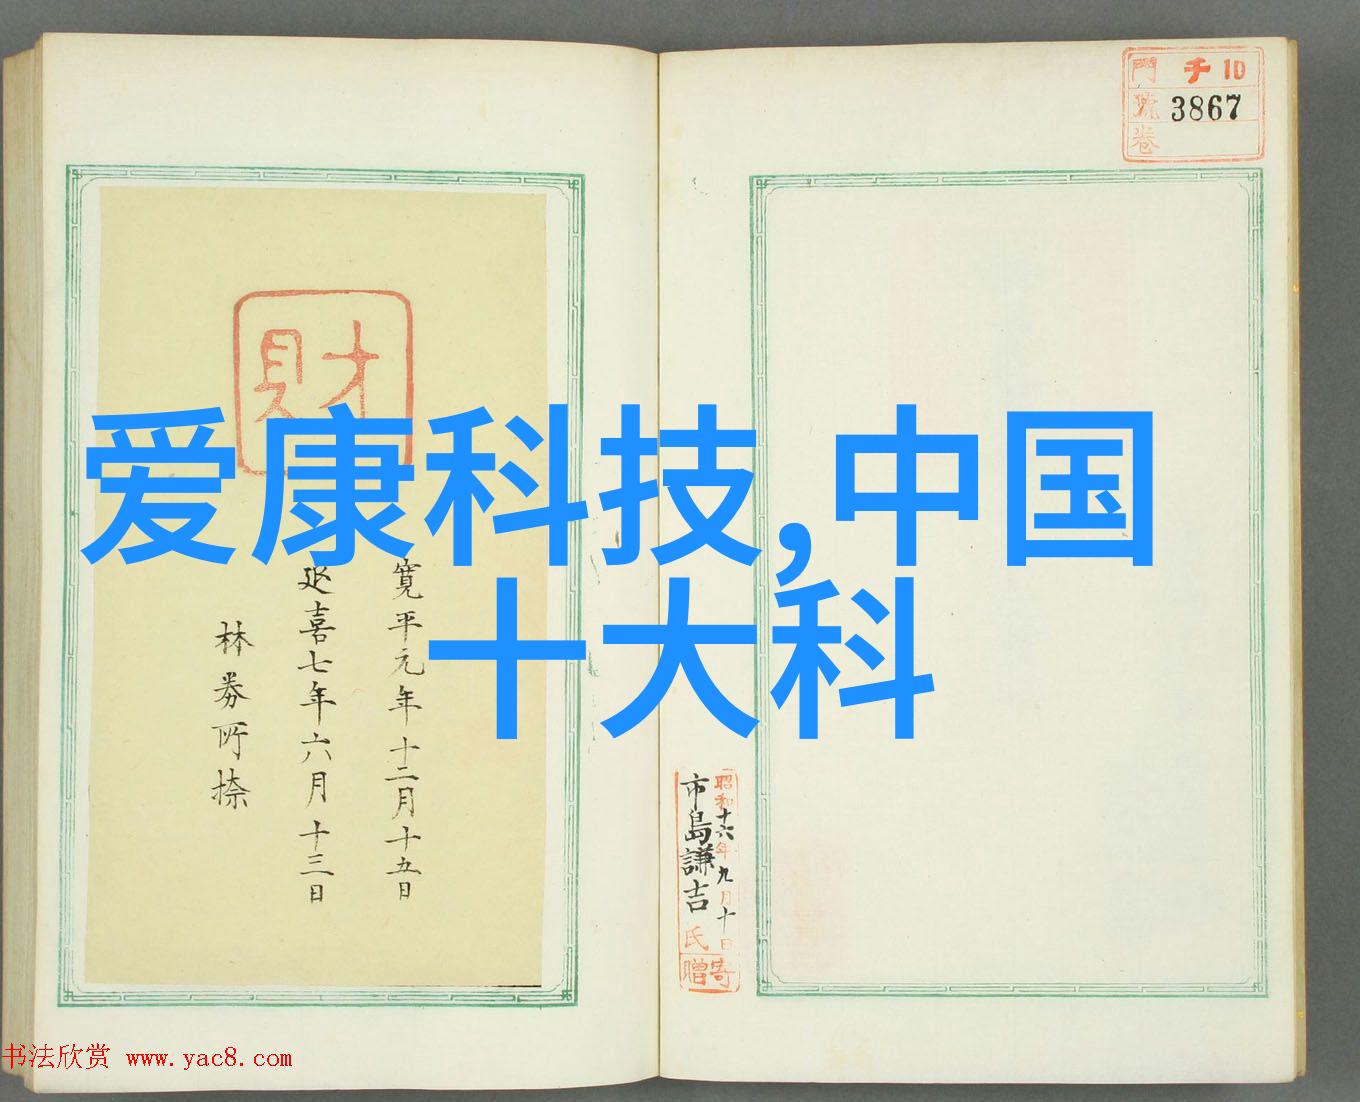 門 千 10
號 3867
卷
財
爱康科技,中国
十大科
寛平元年十二月十五日
延喜七年六月十三日
林券所捺
昭和十六年九月十日
市島謙吉氏
寄贈
书法欣赏 www.yac8.com